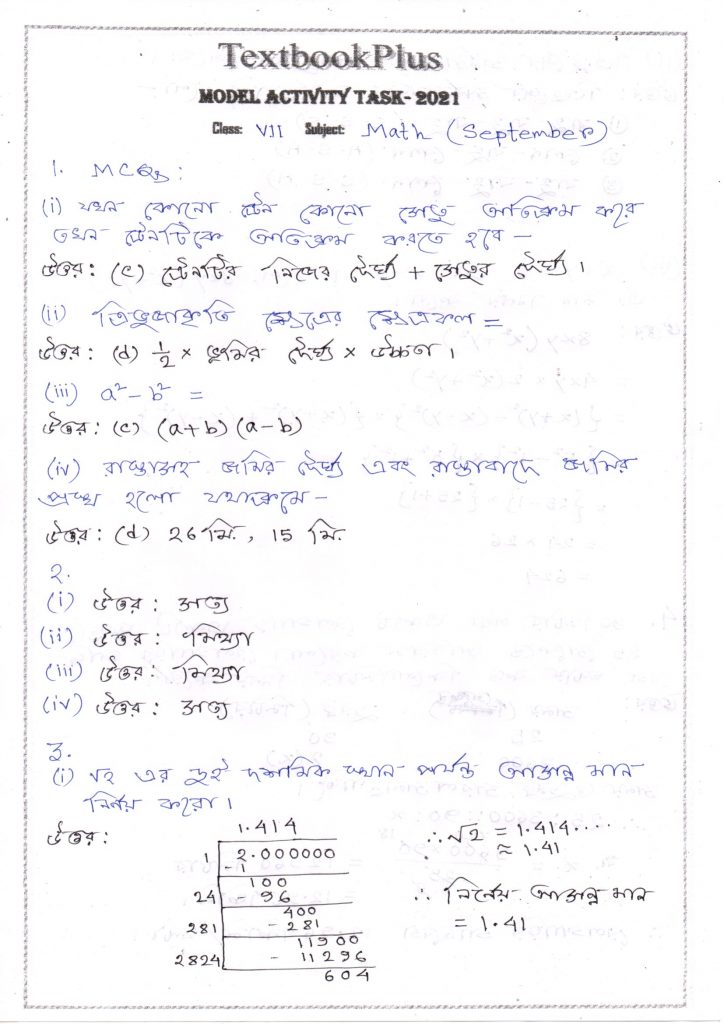 TextbookPlus
MODEL ACTIVITY TASK- 2021
Class: VII Subject: Math (September)
1. MCQs :
(i) যখন কোনো ট্রেন কোনো সেতু অতিক্রম করে
তখন ট্রেনটিকে অতিক্রম করতে হবে –
উত্তর: (c) ট্রেনটির নিজের দৈর্ঘ্য + সেতুর দৈর্ঘ্য ।
(ii) ত্রিভুজাকৃতি ক্ষেত্রের ক্ষেত্রফল =
উত্তর: (d) 1/2 × ভূমির দৈর্ঘ্য × উচ্চতা ।
(iii) a² – b² =
উত্তর: (c) (a+b) (a–b)
(iv) রাস্তাসহ জমির দৈর্ঘ্য এবং রাস্তাবাদে জমির
প্রস্থ হলো যথাক্রমে –
উত্তর: (d) 26 মি. , 15 মি.
২.
(i) উত্তর : সত্য
(ii) উত্তর : মিথ্যা
(iii) উত্তর : মিথ্যা
(iv) উত্তর : সত্য
৩.
(i) √২ এর দুই দশমিক স্থান পর্যন্ত আসন্ন মান
নির্ণয় করো ।
উত্তর:
1.414
1 2.000000
-1
100
24 96
400
281 - 281
11900
2824 - 11296
604
∴ √২ = 1.414....
≈ 1.41
∴ নির্ণেয় আসন্ন মান
= 1.41